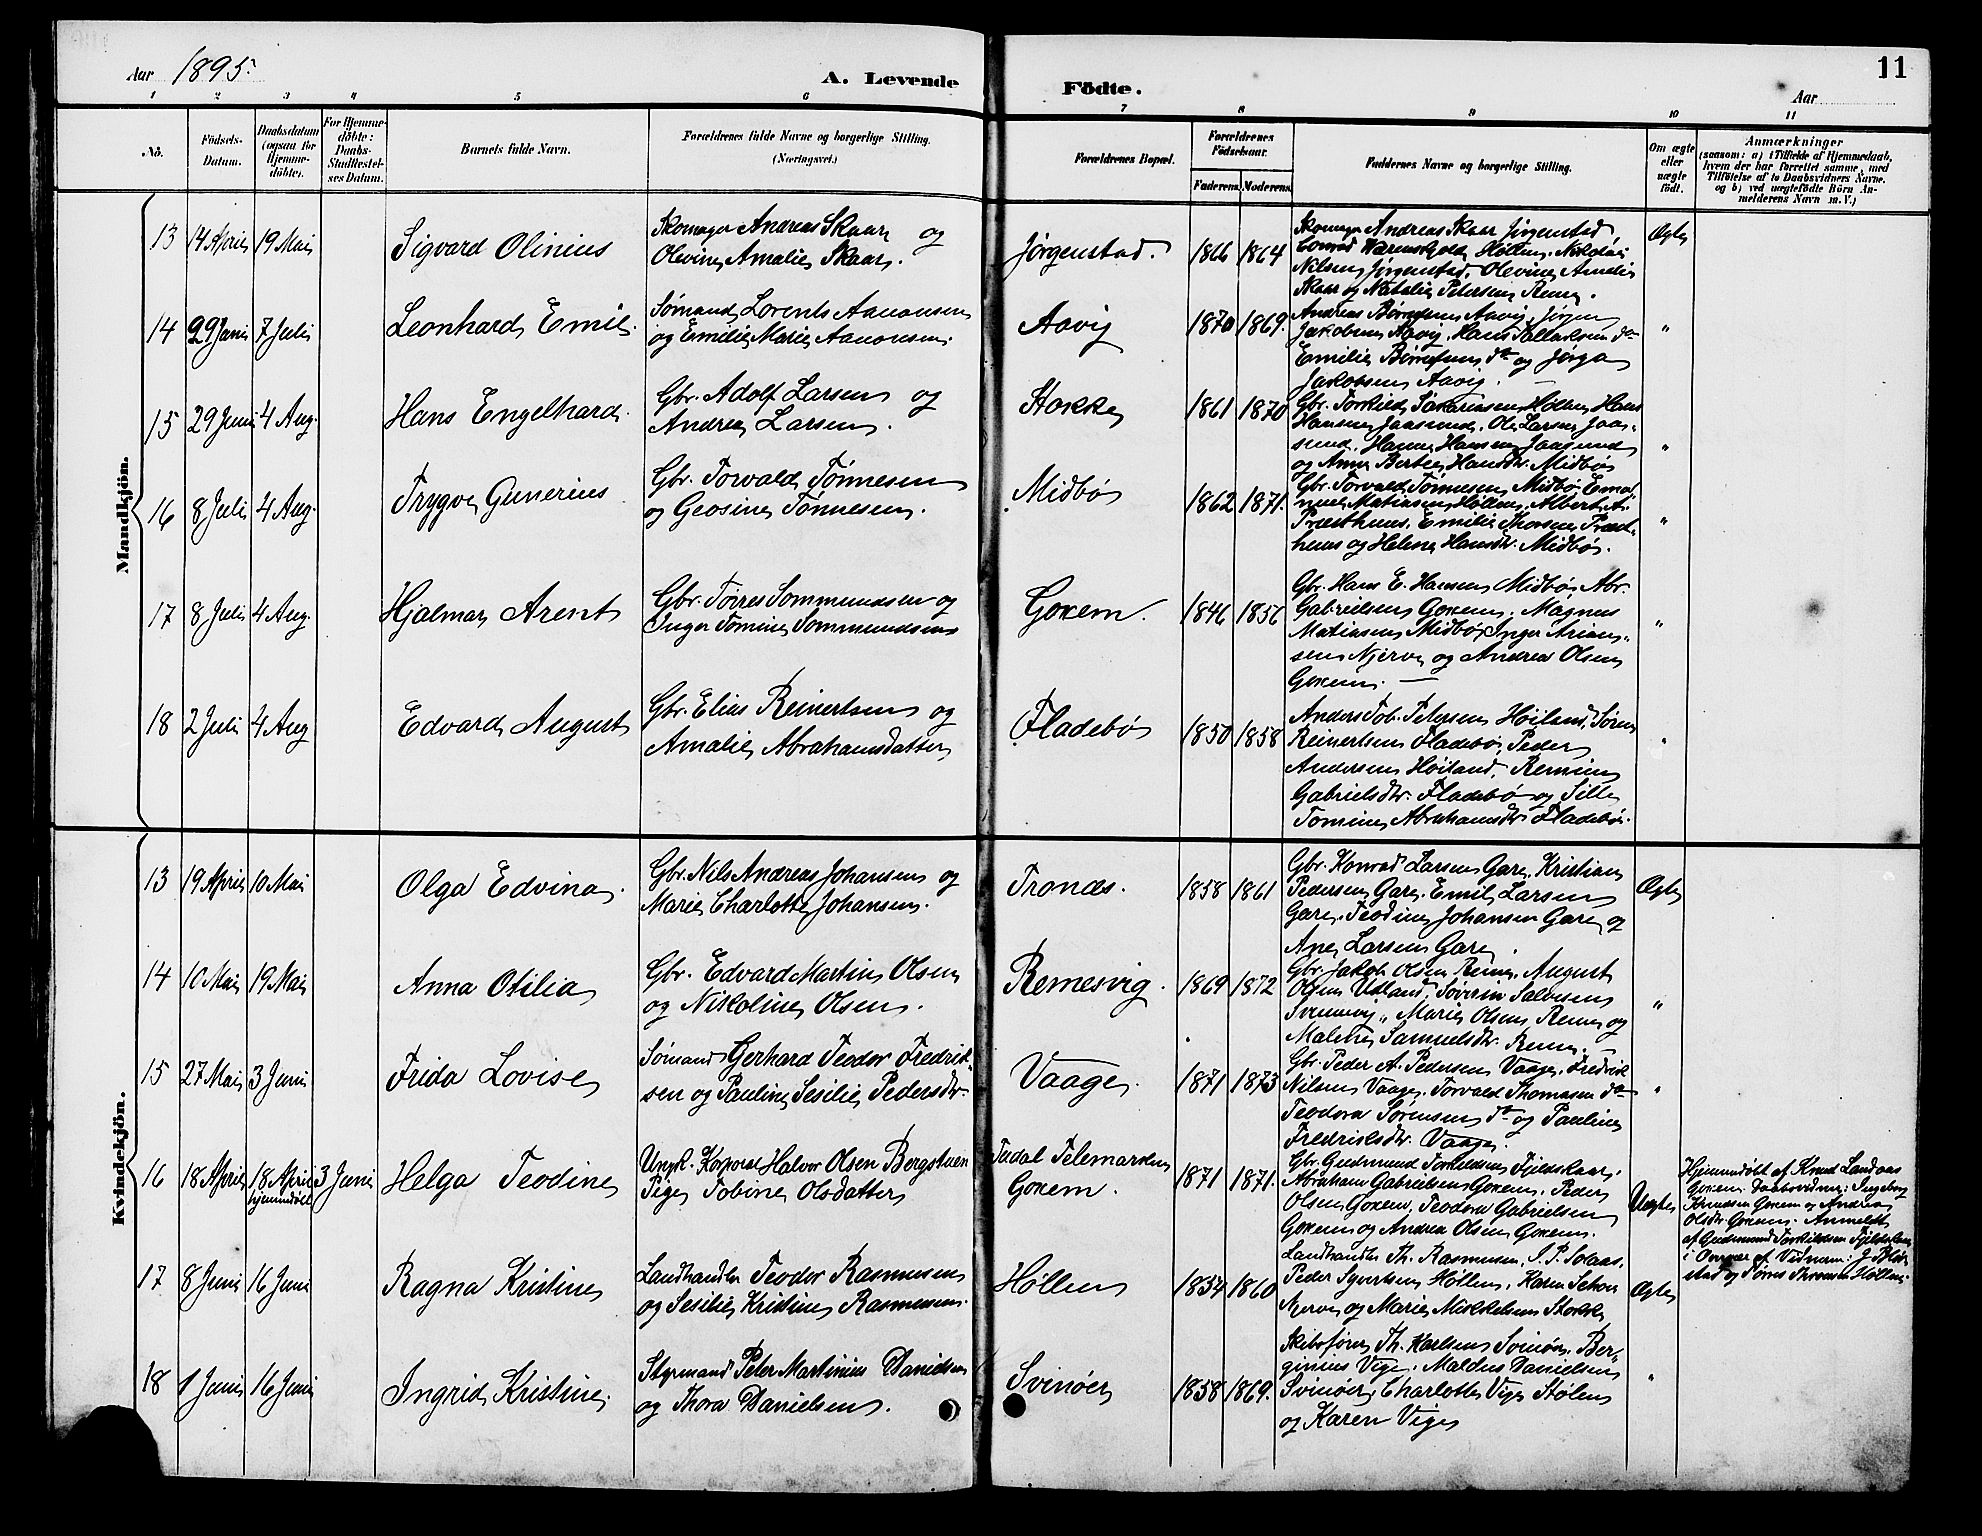 Aar 1895.
A. Levende Födte.
11
Aar
1 2 3 4 5 6 7 8 9 10 11
No.
Födsels-
Datum.
Daabsdatum
(ogsaa for
Hjemme-
döbte).
For Hjemme-
döbte:
Daabs-
Stadfæstel-
ses Datum.
Barnets fulde Navn.
Forældrenes fulde Navne og borgerlige Stilling.
(Næringsvei.)
Forældrenes Bopæl.
Forældrenes
Födselsaar.
Faderens. Moderens.
Faddernes Navne og borgerlige Stilling.
Om ægte
eller
uægte
födt.
Anmærkninger
(saasom: a) i Tilfælde af Hjemmedaab,
hvem der har forrettet samme, med
Tilföielse af to Daabsvidners Navne.
og b) ved uægtefödte Börn An-
melderens Navn m. V.)
Mandkjön.
13 14 April 19 Mai
Sigvard Olinius
Skomager Andreas Skaar og
Olevine Amalie Skaar.
Jørgenstad.
1866 1864
Skomager Andreas Skaar Jørgenstad
Conrad Hølle, Nikolai
Nilsen Jørgenstad, Olevine Amalie
Skaar og Natalie Petersen Rene.
Ægte
14 29 Juni 7 Juli
Leonhard Emil.
Sømand Lorents Aanonsen
og Emilie Marie Aanonsen.
Aavig
1870 1869.
Andreas Børresen Aavig, Jørgen
Jakobsen Aavig, Hans Tallaksen do
Emilie Børresen do og Jørga
Jakobsen Aavig.
"
15 29 Juni 4 Aug.
Hans Engelhard.
Gbr. Adolf Larsen og
Andrea Larsen.
Stokke
1861 1870
Gbr. Torkild Sakariasen Hølle, Hans
Hansen Jaasund, Ole Larsen Jaa-
sund, Hanna Hansen Jaasund
og Anna Bertea Hansdtr. Midbø
"
16 8 Juli 4 Aug.
Trygve Gunerius
Gbr. Torvald Tønnesen
og Geosine Tønnesen.
Midbø
1862 1871.
Gbr. Torvald Tønnesen Midbø, Ema-
nuel Matiasen Hølle, Albert A.
Præsthuus, Emilie Thorsen Præst-
huus og Helene Hansdtr. Midbø.
"
17 8 Juli 4 Aug.
Hjalmar Arent
Gbr. Tørres Sommundsen og
Inger Tomine Sommundsen
Goxem.
1846 1856
Gbr. Hans E. Hansen Midbø, Abr.
Gabrielsen Goxem, Magnus
Matiasen Midbø, Inger Arian-
sen Njerve og Andrea Olsen
Goxem.
"
18 2 Juli 4 Aug
Edvard August
Gbr. Elias Reinertsen og
Amalie Abrahamsdatter
Fladebø
1850 1858
Anders Tob. Petersen Høiland, Søren
Reinertsen Fladebø, Peder
Andersen Høiland,
Gabrielsdtr. Fladebø og Sille
Tomine Abrahamsdtr Fladebø.
"
Kvindekjön.
13 19 April 10 Mai
Olga Edvina.
Gbr. Nils Andreas Johansen og
Marie Charlotte Johansen.
Tronæs.
1858 1861
Gbr. Konrad Larsen Gare, Kristian
Pedersen Gare, Emil Larsen
Gare, Teodine Johansen Gare og
Ane Larsen Gare.
Ægte
14 10 Mai 19 Mai
Anna Otilia
Gbr. Edvard Martin Olsen
og Nikoline Olsen.
Remesvig.
1869 1872
Gbr. Jakob Olsen Rene, August
Olsen Udland, Søverin Salvesen
Svennevig, Marie Olsen Rene og
Malene Samuelsdtr. Rene.
"
15 27 Mai 3 Juni
Frida Lovise
Sømand Gerhard Teodor Fredrik-
sen og Pauline Sesilie Pedersdtr.
Vaage.
1871 1873
Gbr. Peder A. Pedersen Vaage, Fredrik
Nilsen Vaage, Torvald Thomasen do
Teodora Sørensen do og Pauline
Fredriksdtr. Vaage.
"
16 18 April 18 April hjemmedøbt 3 Juni
Helga Teodine
Ungk. Korporal Halvor Olsen Bergstuen
Pige Tobine Olsdatter
Tudal Telemarken
Goxem.
1871 1871.
Gbr. Gudmund Torkildsen Fjeldskaar,
Abraham Gabrielsen Goxem, Peder
Olsen Goxem, Teodora Gabrielsen
Goxem og Andrea Olsen Goxem.
Uægte
Hjemmedøbt af Knud Landaas
Goxem. Daabsvidner: Ingeborg
Knudsen Goxem og Andrea
Olsdtr Goxem. Anmeldt
af Gudmund Torkildsen Fjeldskaar
i Overvær af Vidnerne:
stad og Tønnes Hølle.
17 8 Juni 16 Juni
Ragna Kristine
Landhandler Teodor Rasmussen
og Sesilie Kristine Rasmussen.
Hølle
1854 1860
Landhandler Th. Rasmussen, I. P. Solaas,
Peder Syvertsen Hølle, Karen
Njerve og Marie Mikkelsen Stokke
Ægte
18 1 Juni 16 Juni
Ingrid Kristine.
Styrmand Peter Martinius Danielsen
og Thora Danielsen.
Svinør
1858 1869.
Skibsfører Th. Karlsen Svinør, Ber-
ginius Vige, Maldus Danielsen
Svinør, Charlotte Vige Stølen
og Karen Vige
"